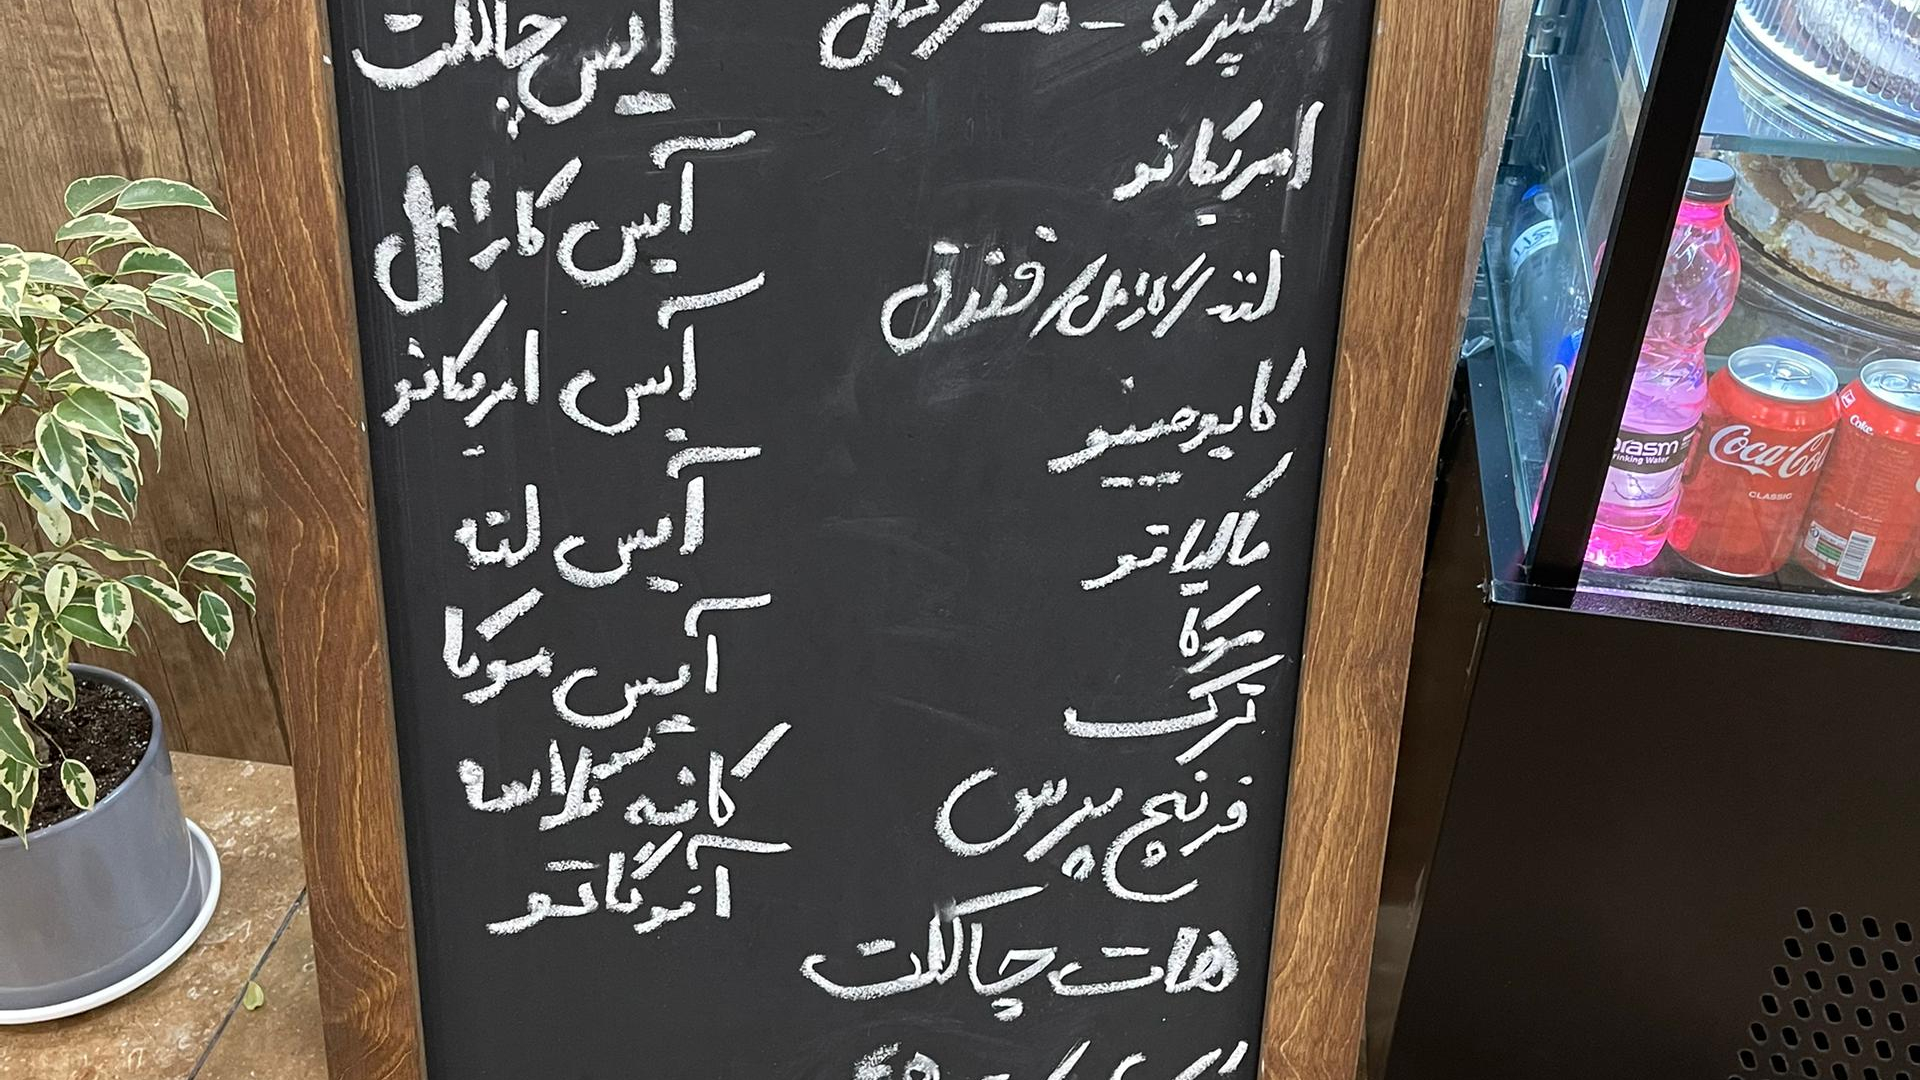 امریکانو
لته/کارامل/فندق
کاپوچینو
ماکیاتو
موکا
ترک
فرنچ پرس
هات چاکلت
آیس چاکلت
آیس کارامل
آیس امریکانو
آیس لته
آیس موکا
کافه گلاسه
آفوگاتو
Drinking Water
Coca-Cola
CLASSIC
Coke